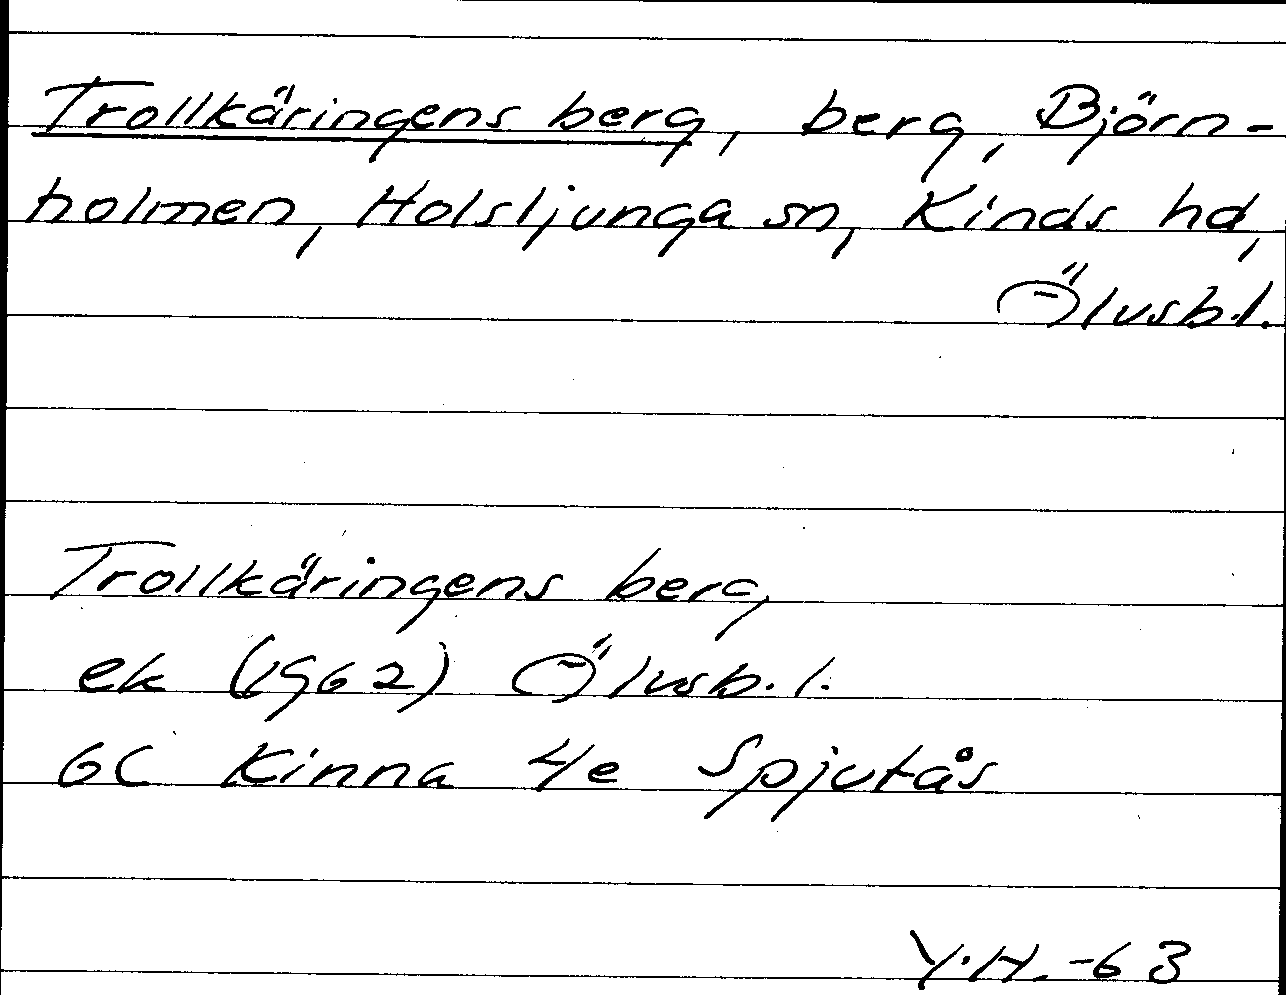 Trollkäringens berg, berg, Björn-
holmen, Holsljunga sn, Kinds hd,
Älvsb.l.
Trollkäringens berg
ek (1962) Älvsb.l.
6C Kinna 4e Spjutås
Y.H. -63